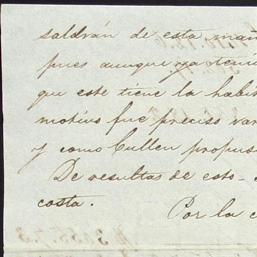 saldrán de esta
pues aunque ya
que este tiene la
motivo fue preciso
y como Cullen
De resultas de esto
costa.
Por la